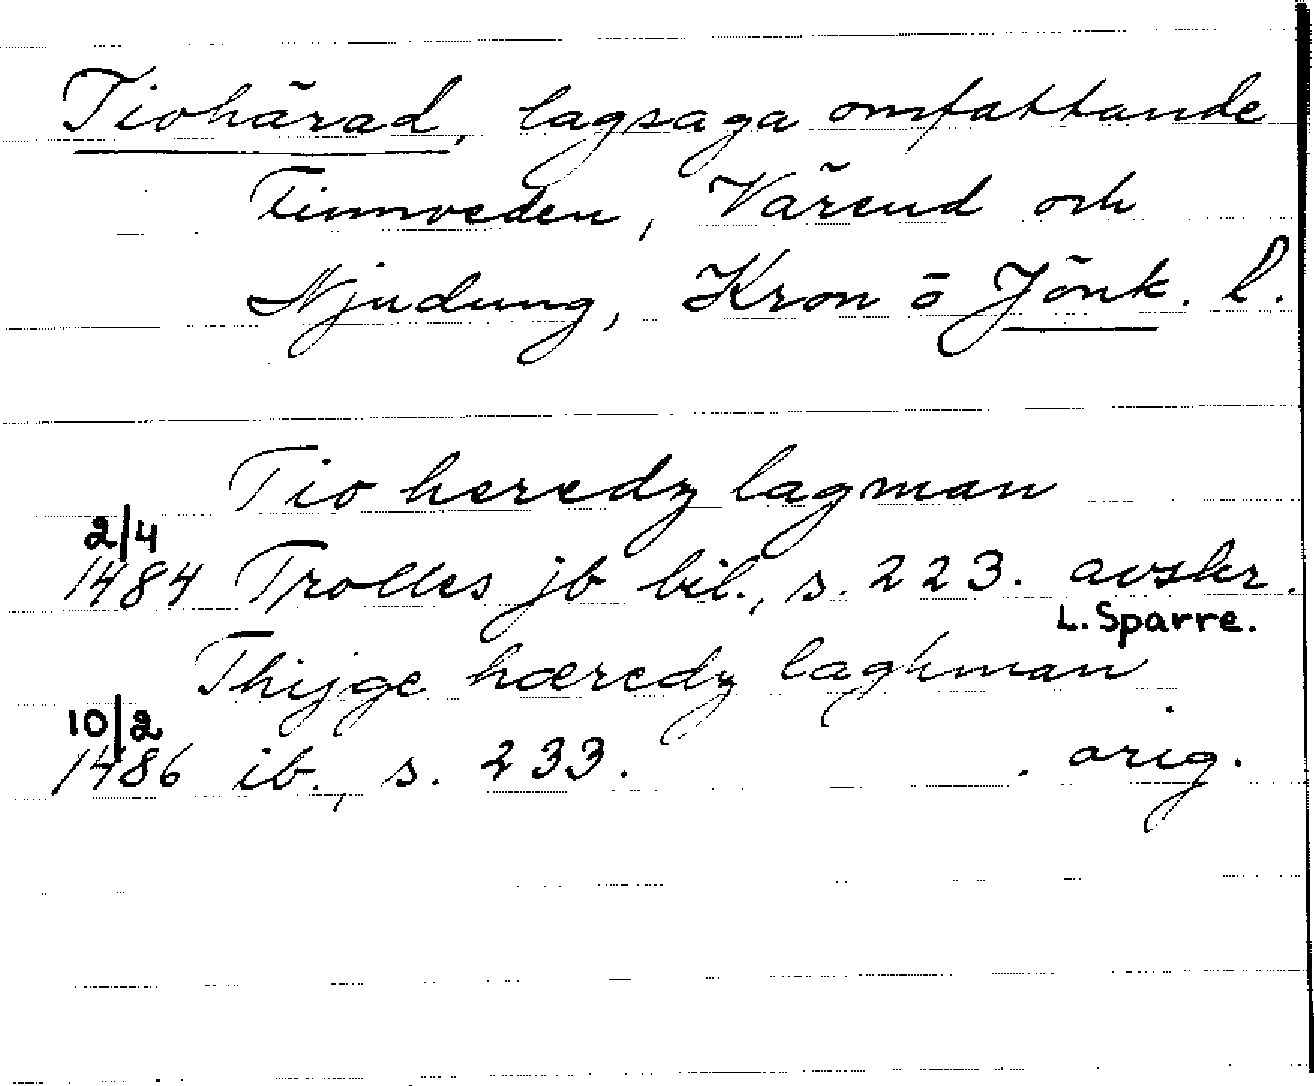 Tiohärad, lagsaga omfattande
Finnveden, Värend och
Njudung, Kron ō Jönk. l.
Tio heredz lagman
2/4
1484 Trolles jb bil., s. 223. avskr.
L. Sparre.
Thijge hæredz laghman
10/2
1486 ib., s. 233. orig.